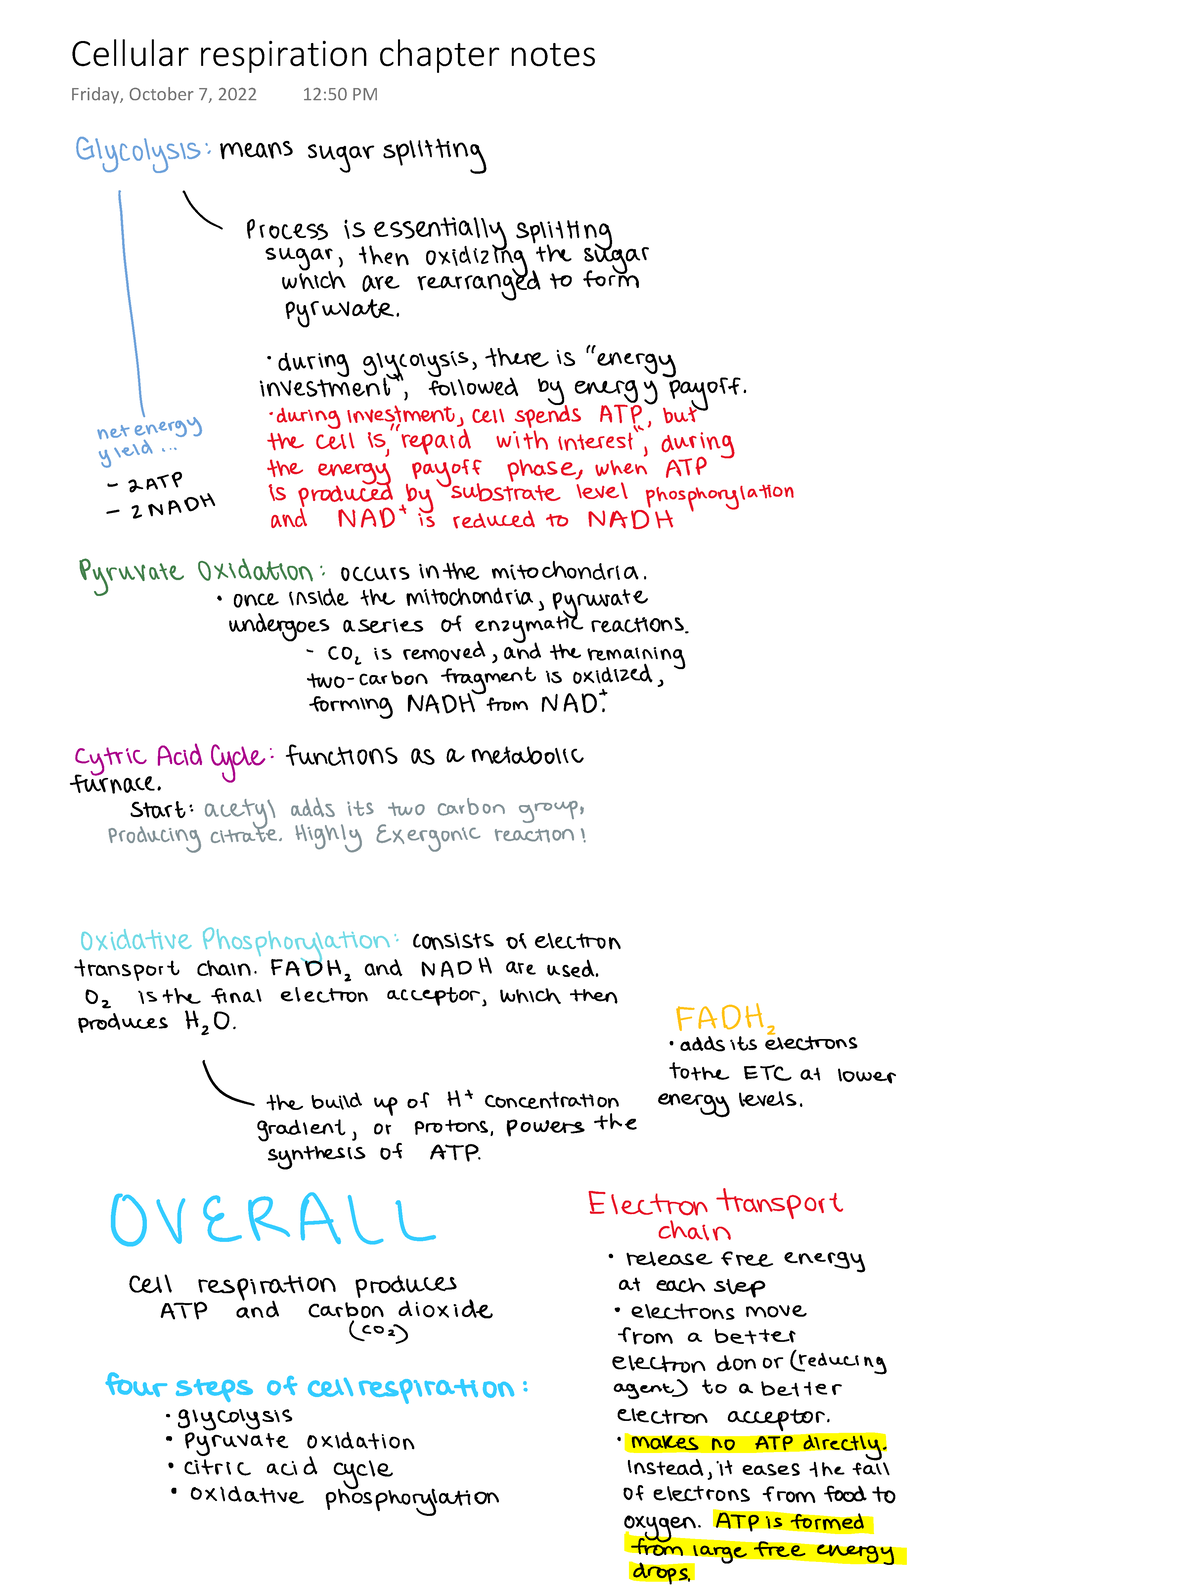 Cellular respiration chapter notes
Friday, October 7, 2022 12:50 PM
Glycolysis: means sugar splitting
Process is essentially splitting
sugar, then oxidizing the sugar
which are rearranged to form
pyruvate.
• during glycolysis, there is "energy
investment", followed by energy payoff.
• during investment, cell spends ATP, but
the cell is, "repaid with interest", during
the energy payoff phase, when ATP
is produced by substrate level phosphorylation
and NAD⁺ is reduced to NADH
net energy
yield ...
- 2 ATP
- 2 NADH
Pyruvate Oxidation: occurs in the mitochondria.
• once inside the mitochondria, pyruvate
undergoes a series of enzymatic reactions.
- CO₂ is removed, and the remaining
two-carbon fragment is oxidized,
forming NADH from NAD⁺.
Cytric Acid Cycle: functions as a metabolic
furnace.
Start: acetyl adds its two carbon group,
Producing citrate. Highly Exergonic reaction!
Oxidative Phosphorylation: consists of electron
transport chain. FADH₂ and NADH are used.
O₂ is the final electron acceptor, which then
produces H₂O.
the build up of H⁺ concentration
gradient, or protons, powers the
synthesis of ATP.
FADH₂
• adds its electrons
to the ETC at lower
energy levels.
OVERALL
Cell respiration produces
ATP and carbon dioxide
(CO₂)
four steps of cell respiration:
• glycolysis
• Pyruvate oxidation
• citric acid cycle
• oxidative phosphorylation
Electron transport
chain
• release free energy
at each step
• electrons move
from a better
electron donor (reducing
agent) to a better
electron acceptor.
• makes no ATP directly.
Instead, it eases the fall
of electrons from food to
oxygen. ATP is formed
from large free energy
drops.